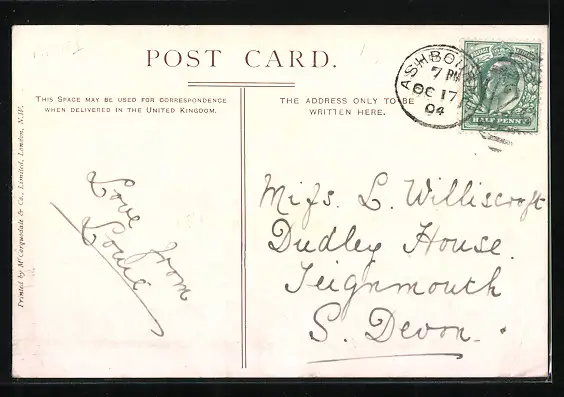 POST CARD.
THIS SPACE MAY BE USED FOR CORRESPONDENCE
WHEN DELIVERED IN THE UNITED KINGDOM.
THE ADDRESS ONLY TO BE
WRITTEN HERE.
7 PM
OC 17
04
HALF PENNY
Love from
Louie
Miss. L. Williscroft
Dudley House.
Teignmouth
S. Devon.
Printed by McCorquodale & Co., Limited, London, N.W.